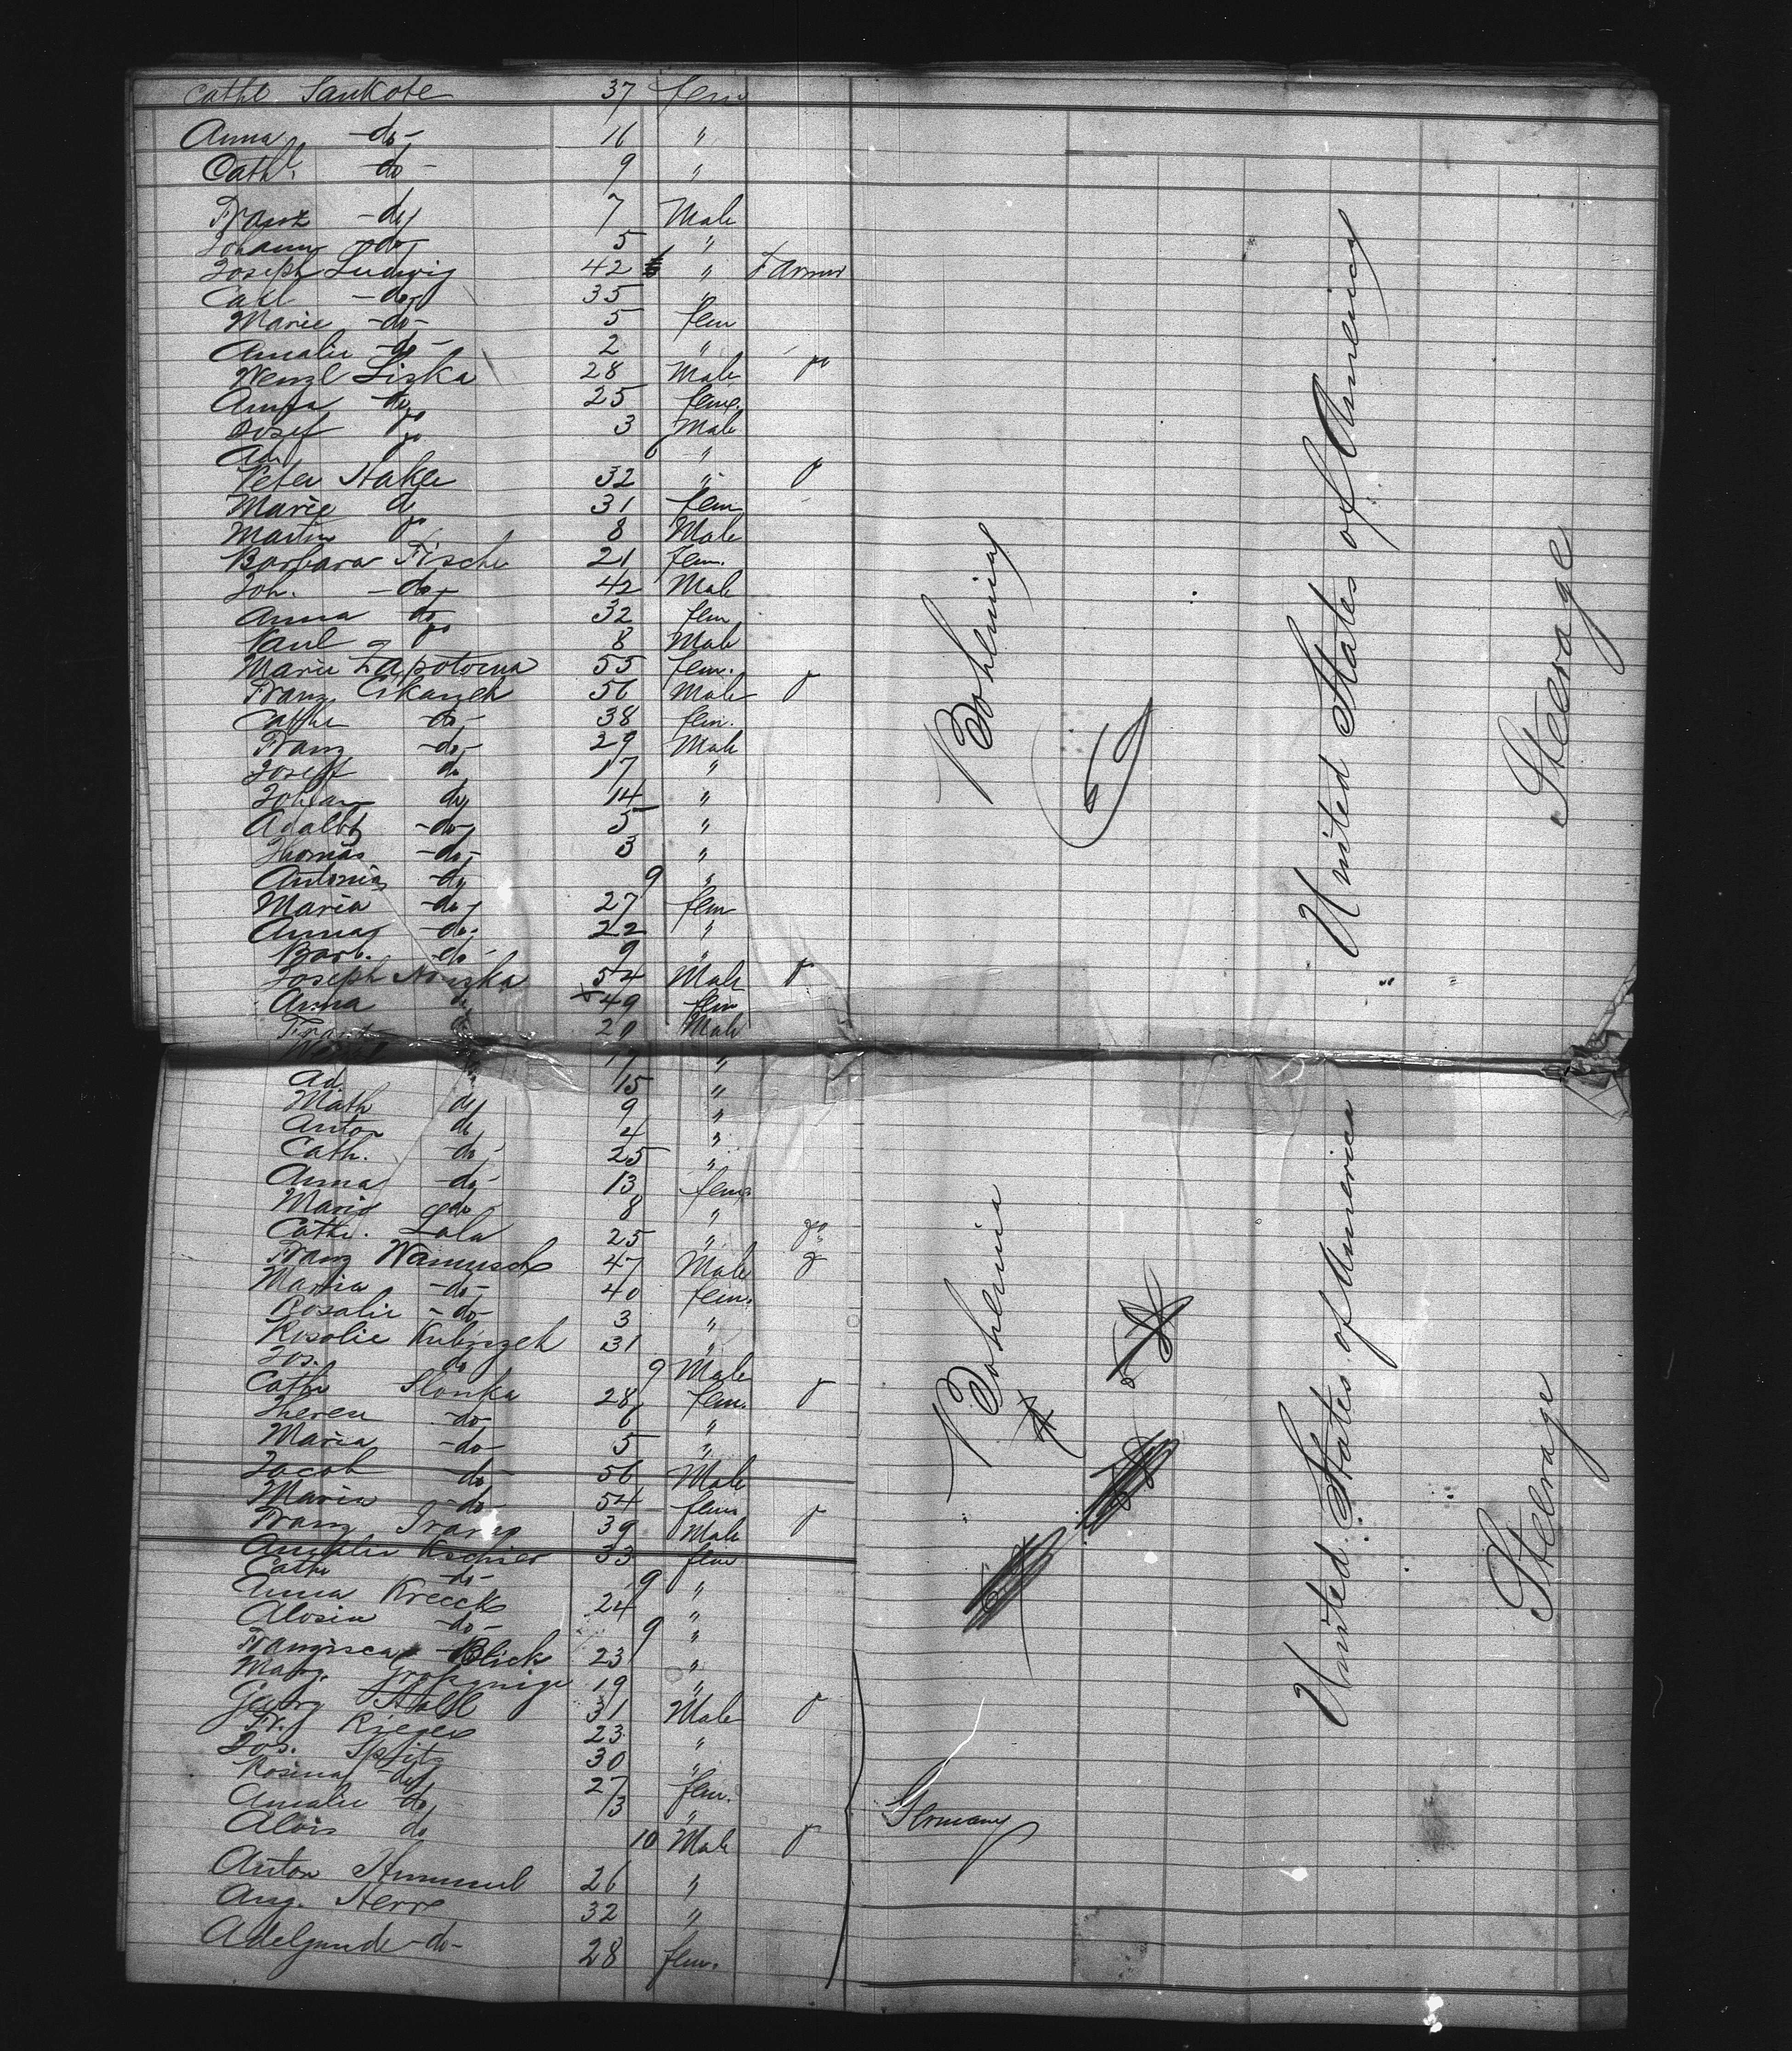 Cathe Sankote 37 fem
Anna -do- 16 "
Cathe -do- 9 "
Franz -do- 7 Male
Johann -do- 5 "
Joseph Ludwig 42 " Farmer
Carl -do- 35 "
Marie -do- 5 fem
Amalie -do- 2 "
Wenzl Liska 28 Male do
Anna do 25 fem.
Josef do 3 Male
Ad. do 6 "
Peter Haker 32 " do
Marie do 31 fem
Martin do 8 Male
Barbara Fische 21 fem.
Joh. -do- 42 Male
Anna do 32 fem
Paul do 8 Male
Marie Zapotocna 55 fem.
Franz Cikanzek 56 Male do
Cathe -do- 38 fem.
Franz -do- 29 Male
Josef do 17 "
Johan do 14 "
Adalbt -do- 5 "
Thomas -do- 3 "
Antonia do 9 "
Maria -do- 27 fem
Anna -do- 22 "
Barb. do 9 "
Joseph 54 Male do
Anna do 49 fem
Franz do 20 Male
do 17 "
Ad. do 15 "
Math do 9 "
Anton do 4 "
Cath. -do- 25 "
Anna -do- 13 fem
Maria do 8 "
Cathe. Lala 25 " do
Franz Wanusch 47 Male do
Maria -do- 40 fem.
Rosalie -do- 3 "
Rosalie Kubiczek 31 "
Jos. do 9 Male
Cathe Slonka 28 fem. do
Therese -do- 6 "
Maria -do- 5 "
Jacob -do- 56 Male
Maria -do- 54 fem
Franz 39 Male do
Amalie 33 fem
Cathe -do- 9 "
Anna Kreeck 24 "
Alosia -do- 9 "
Franzisca Blick 23 "
Marg. 19 "
Georg Stoll 31 Male do
Fr. Rieger 23 "
Jos. Spitz 30 "
Rosina do 27 fem.
Amalie do 3 "
Alois do 10 Male do
Anton Hummel 26 "
Aug. Herre 32 "
Adelgunde -do- 28 fem.
Bohemia
United States of America
Steerage
Bohemia
United States of America
Steerage
Germany